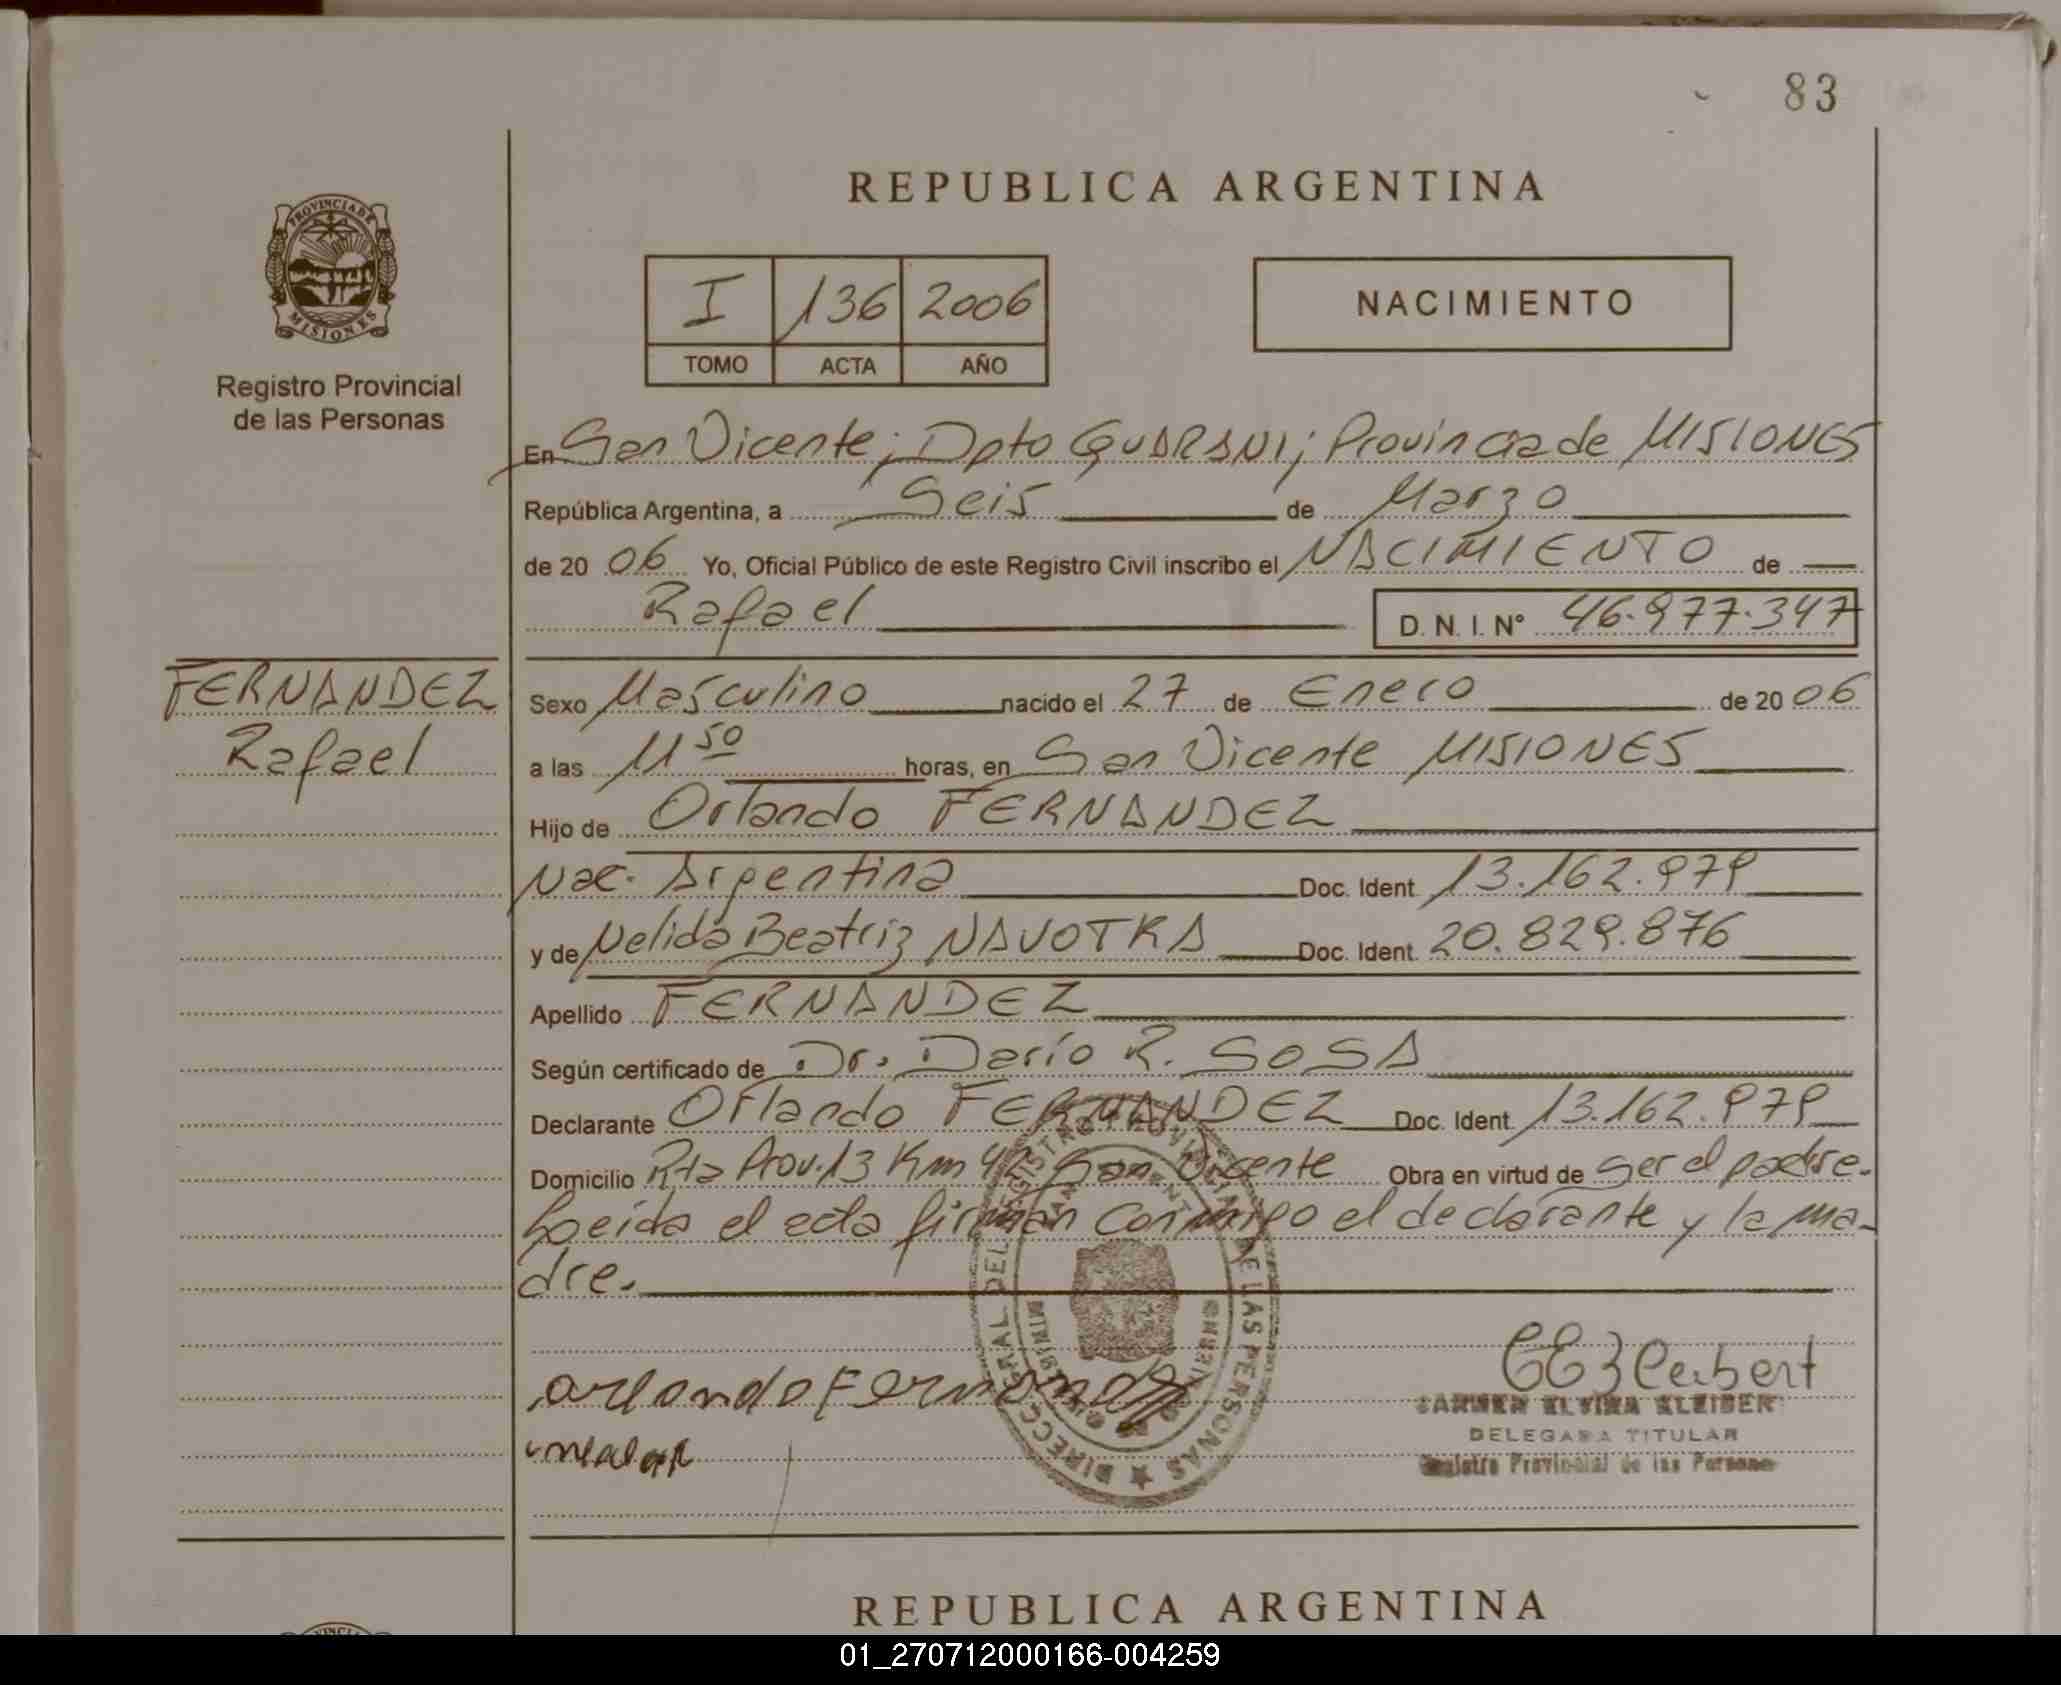 83
REPUBLICA ARGENTINA
PROVINCIA DE
MISIONES
Registro Provincial
de las Personas
I 136 2006
TOMO ACTA AÑO
NACIMIENTO
En San Vicente; Dpto GUARANI; Provincia de MISIONES
República Argentina, a Seis de Marzo
de 20 06 Yo, Oficial Público de este Registro Civil inscribo el NACIMIENTO de
Rafael D. N. I. N° 46.977.347
FERNANDEZ
Rafael
Sexo Masculino nacido el 27 de Enero de 20 06
a las 11 50 horas, en San Vicente MISIONES
Hijo de Orlando FERNANDEZ
Nac. Argentina Doc. Ident. 13.162.979
y de Nelida Beatriz NAVOTKA Doc. Ident. 20.829.876
Apellido FERNANDEZ
Según certificado de Dr. Darío R. SOSA
Declarante Orlando FERNANDEZ Doc. Ident. 13.162.979
Domicilio Rta Prov. 13 Km San Vicente Obra en virtud de ser el padre.
Leida el acta firman conmigo el declarante y la ma-
dre.
DIRECC GRAL DEL REGISTRO PROVINCIAL DE LAS PERSONAS
orlando Fernandez
CARMEN ELVIRA KLEIBER
DELEGADA TITULAR
Registro Provincial de las Personas
REPUBLICA ARGENTINA
01_270712000166-004259